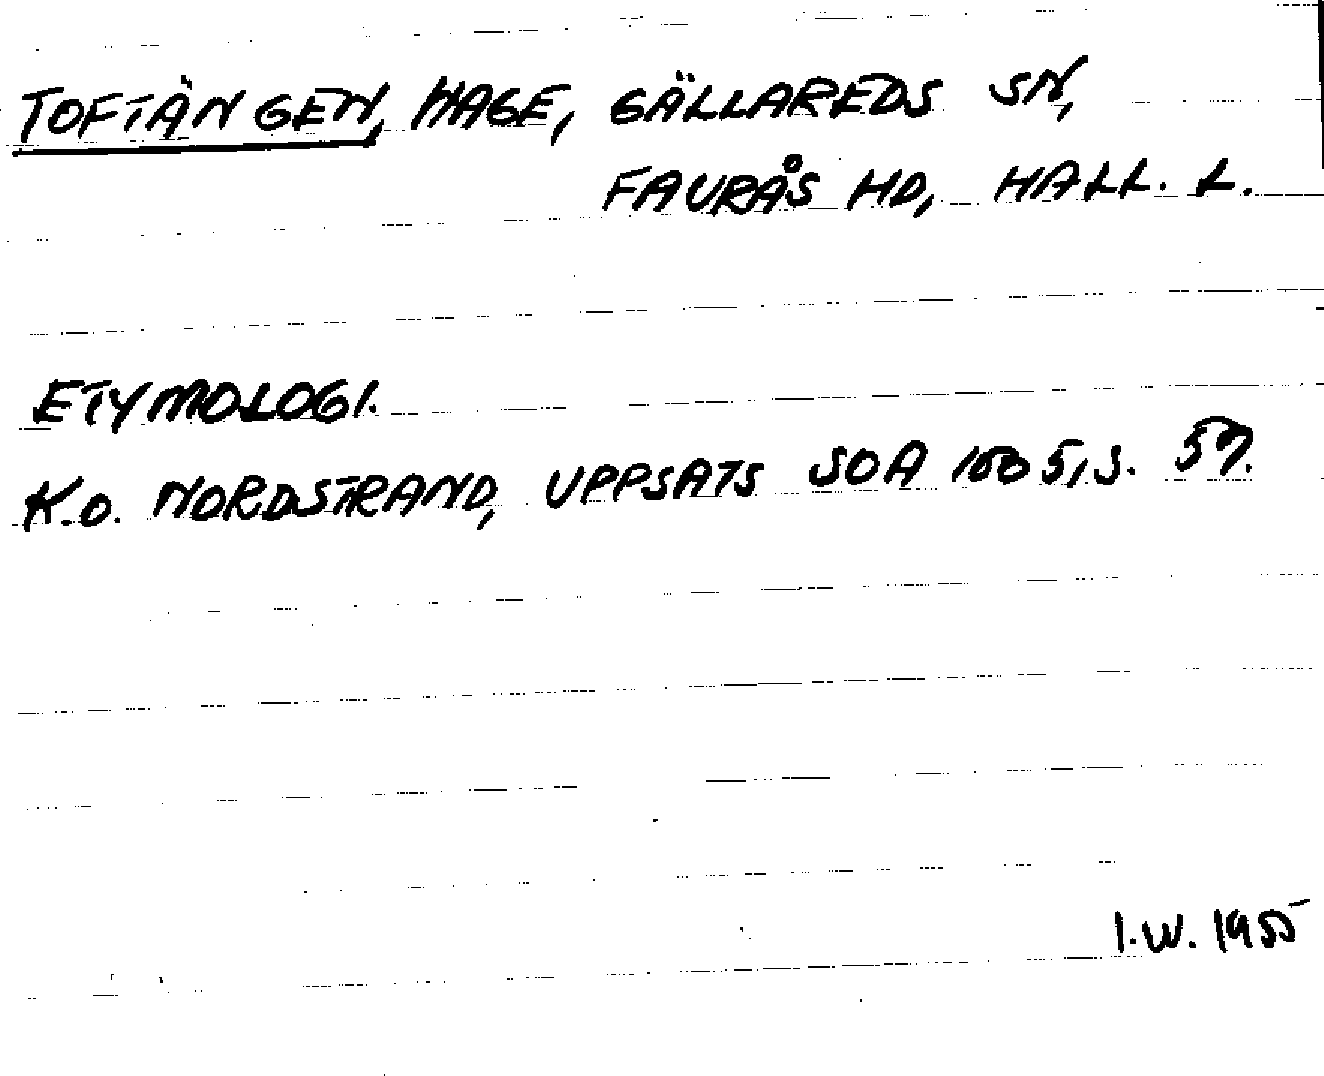 TOFTÄNGEN, HAGE, GÄLLAREDS SN,
FAURÅS HD, HALL. L.
ETYMOLOGI.
K.O. NORDSTRAND, UPPSATS SOA 1005, S. 57.
I.W. 1955